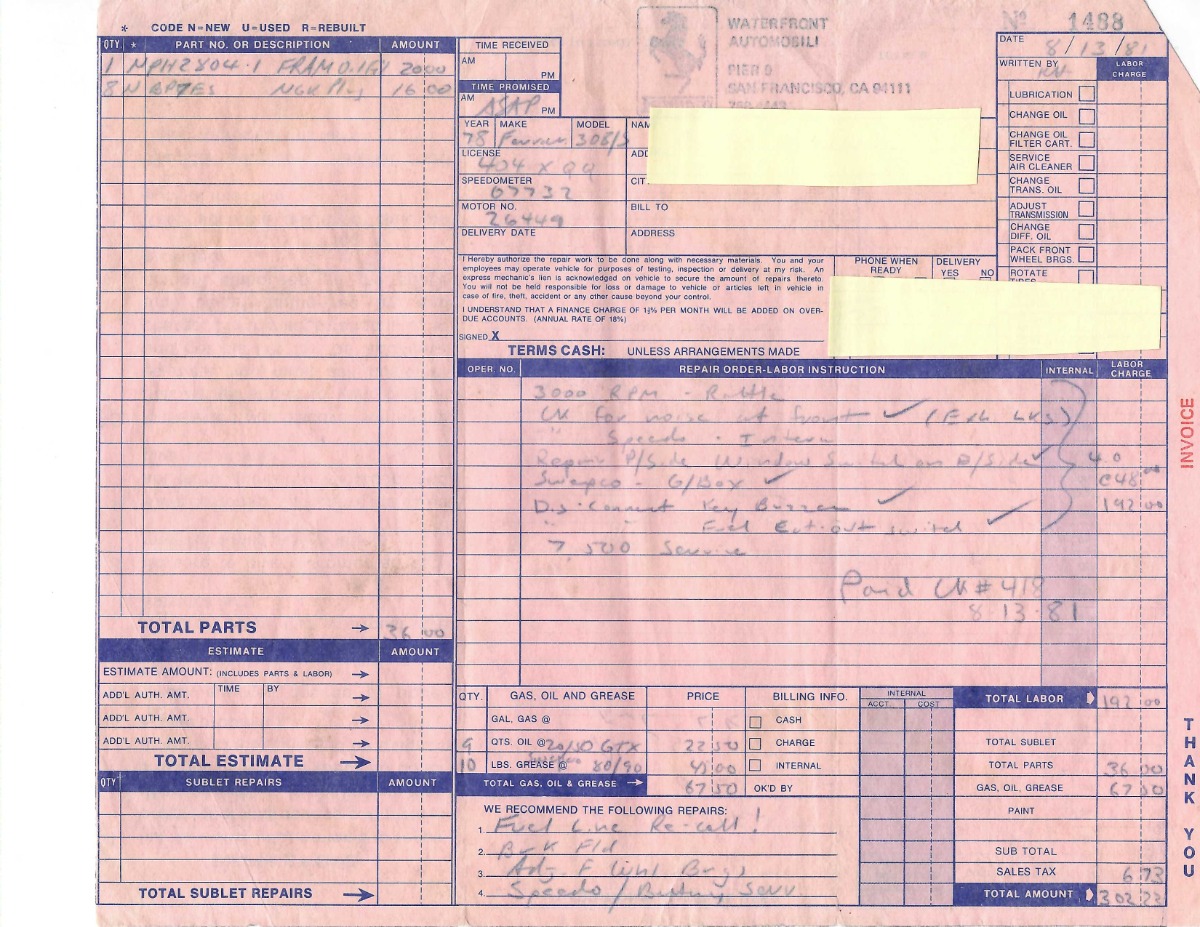 * CODE N=NEW U=USED R=REBUILT
QTY. * PART NO. OR DESCRIPTION AMOUNT
1 N PH2804-1 FRAM 20 00
8 N BP7ES NGK Plug 16 00
TOTAL PARTS → 36 00
ESTIMATE AMOUNT
ESTIMATE AMOUNT: (INCLUDES PARTS & LABOR) →
ADD'L AUTH. AMT. TIME BY →
ADD'L AUTH. AMT. →
ADD'L AUTH. AMT. →
TOTAL ESTIMATE →
QTY SUBLET REPAIRS AMOUNT
TOTAL SUBLET REPAIRS →
TIME RECEIVED
AM PM
TIME PROMISED
AM ASAP PM
WATERFRONT
AUTOMOBILI
PIER 9
SAN FRANCISCO, CA 94111
Nº 1488
DATE 8/13/81
WRITTEN BY
LABOR CHARGE
YEAR MAKE MODEL
78 Ferrari 308/S
LICENSE
404 XQQ
SPEEDOMETER
07732
MOTOR NO.
26449
DELIVERY DATE
NAM
ADD
CIT
BILL TO
ADDRESS
LUBRICATION
CHANGE OIL
CHANGE OIL
FILTER CART.
SERVICE
AIR CLEANER
CHANGE
TRANS. OIL
ADJUST
TRANSMISSION
CHANGE
DIFF. OIL
PACK FRONT
WHEEL BRGS.
ROTATE
TIRES
I Hereby authorize the repair work to be done along with necessary materials. You and your
employees may operate vehicle for purposes of testing, inspection or delivery at my risk. An
express mechanic's lien is acknowledged on vehicle to secure the amount of repairs thereto.
You will not be held responsible for loss or damage to vehicle or articles left in vehicle in
case of fire, theft, accident or any other cause beyond your control.
I UNDERSTAND THAT A FINANCE CHARGE OF 1½% PER MONTH WILL BE ADDED ON OVER-
DUE ACCOUNTS. (ANNUAL RATE OF 18%)
SIGNED X
PHONE WHEN
READY
DELIVERY
YES NO
TERMS CASH: UNLESS ARRANGEMENTS MADE
OPER. NO. REPAIR ORDER-LABOR INSTRUCTION INTERNAL LABOR CHARGE
3000 RPM - Rattle
CK For noise at front ✓ (Exh LKS)
" Speedo - Interm
Repair P/Side Window Switch on D/Side ✓ 4.0
Swepco - G/Box ✓ C48.00
Dis-Connect Key Buzzer ✓ 192 00
" " Fuel Cut-out switch ✓
7,500 Service
Paid CK # 418
8-13-81
QTY. GAS, OIL AND GREASE PRICE BILLING INFO.
GAL. GAS @ CASH
9 QTS. OIL @ 20/50 GTX 22 50 CHARGE
10 LBS. GREASE @ 80/90 45 00 INTERNAL
TOTAL GAS, OIL & GREASE → 67 50 OK'D BY
INTERNAL
ACCT. COST
WE RECOMMEND THE FOLLOWING REPAIRS:
1. Fuel Line Re-call!
2. Brk Fld
3. Adj. F Whl Brgs
4. Speedo / Battery Serv
TOTAL LABOR 192 00
TOTAL SUBLET
TOTAL PARTS 36 00
GAS, OIL, GREASE
PAINT
SUB TOTAL
SALES TAX 6 73
TOTAL AMOUNT 302 23
INVOICE
THANK YOU